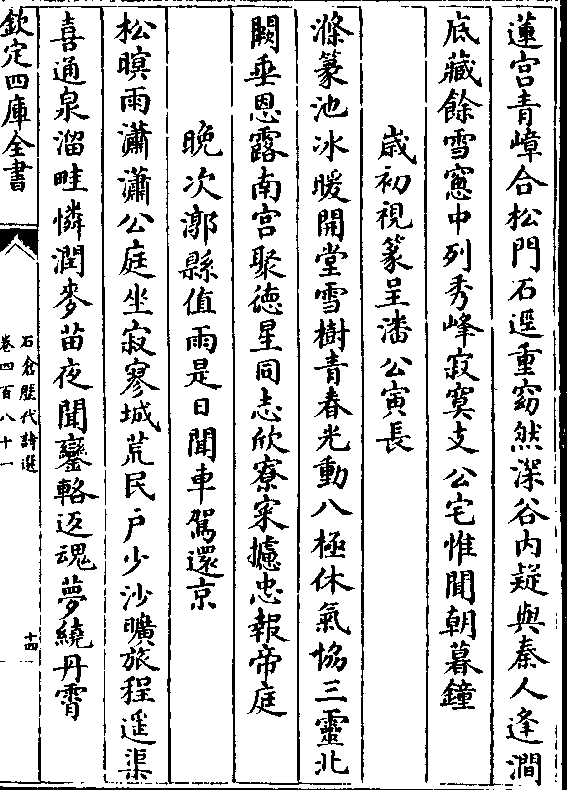 蓮宫青嶂合松門石逕重窈然深谷内疑與秦人逢澗
底藏餘雪窻中列秀峰寂寞支公宅惟聞朝暮鐘
歳初視篆呈潘公寅長
滌篆池冰暖開堂雪樹青春光動八極休氣協三靈北
闕垂恩露南宫聚徳星同志欣寮寀攄忠報帝庭
晚次漷縣值雨是日聞車駕還京
松暝雨瀟瀟公庭坐寂寥城荒民戸少沙曠旅程遥渠
喜通泉溜畦憐潤麥苗夜聞鑾輅返魂夢繞丹霄
欽定四庫全書
石倉歴代詩選
卷四百八十一
十四